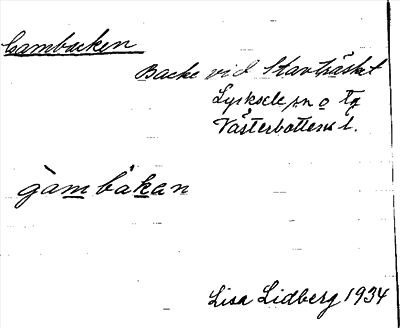 Gambacken
Backe vid Stavträsket
Lycksele sn o tg
Västerbottens l.
gàm bàkan
Lisa Lidberg 1934